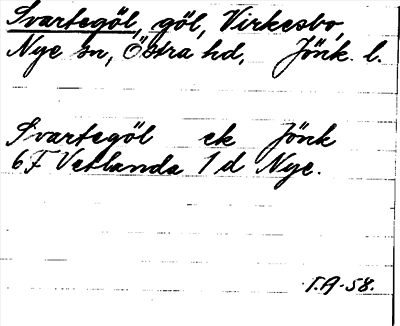 Svartegöl, göl, Virkesbo,
Nye sn, Östra hd, Jönk. l.
Svartegöl ek Jönk
6F Vetlanda 1 d Nye.
T.A-58.